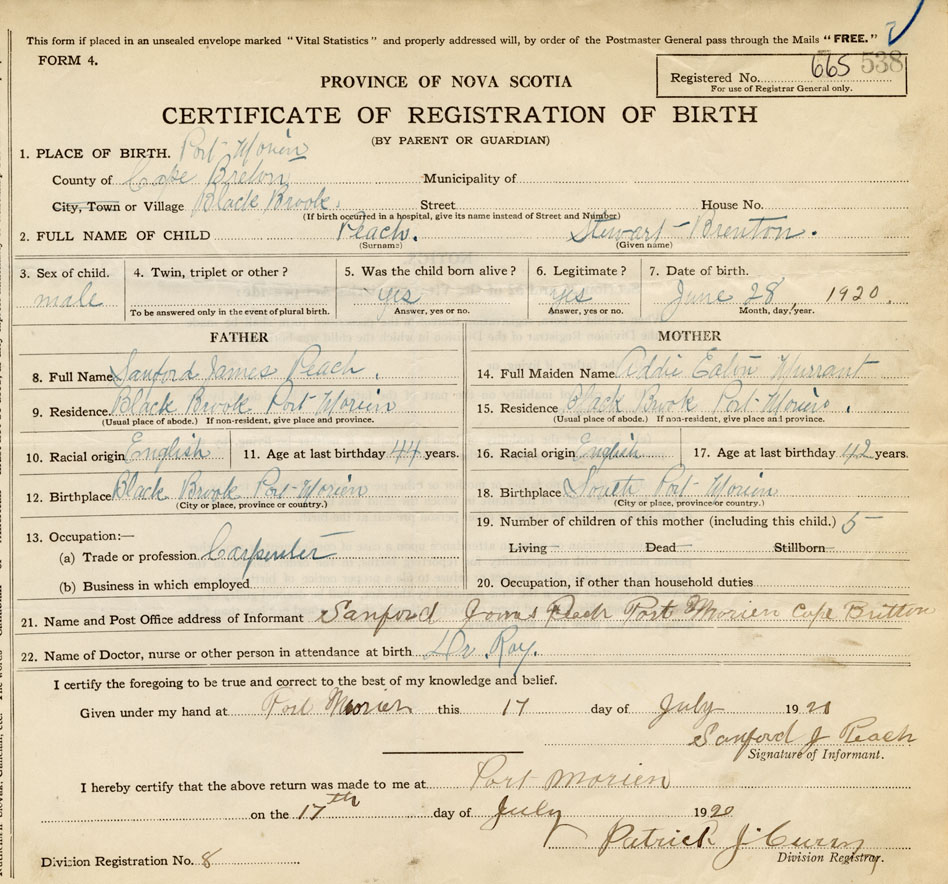 This form if placed in an unsealed envelope marked "Vital Statistics" and properly addressed will, by order of the Postmaster General pass through the Mails "FREE."
FORM 4.
Registered No. 665 538
For use of Registrar General only.
PROVINCE OF NOVA SCOTIA
CERTIFICATE OF REGISTRATION OF BIRTH
(BY PARENT OR GUARDIAN)
1. PLACE OF BIRTH. Port Morien
County of Cape Breton Municipality of
City, Town or Village Black Brook. Street House No.
(If birth occurred in a hospital, give its name instead of Street and Number)
2. FULL NAME OF CHILD Peach. Stewart Brenton.
(Surname) (Given name)
3. Sex of child. 4. Twin, triplet or other? 5. Was the child born alive? 6. Legitimate? 7. Date of birth.
male yes yes June 28, 1920.
To be answered only in the event of plural birth. Answer, yes or no. Answer, yes or no. Month, day, year.
FATHER MOTHER
8. Full Name Sanford James Peach. 14. Full Maiden Name Addie Eaton Murrant
9. Residence. Black Brook Port Morien 15. Residence Black Brook Port Morien.
(Usual place of abode.) If non-resident, give place and province. (Usual place of abode.) If non-resident, give place and province.
10. Racial origin English 11. Age at last birthday 44 years. 16. Racial origin English 17. Age at last birthday 42 years.
12. Birthplace Black Brook Port Morien 18. Birthplace South Port Morien
(City or place, province or country.) (City or place, province or country.)
13. Occupation:— 19. Number of children of this mother (including this child.) 5
(a) Trade or profession Carpenter Living Dead Stillborn
(b) Business in which employed 20. Occupation, if other than household duties
21. Name and Post Office address of Informant Sanford Peach Port Morien Cape Britton
22. Name of Doctor, nurse or other person in attendance at birth Dr Roy.
I certify the foregoing to be true and correct to the best of my knowledge and belief.
Given under my hand at Port Morien this 17 day of July 1920
Sanford J Peach
Signature of Informant.
I hereby certify that the above return was made to me at Port Morien
on the 17th day of July 1920
Patrick J. Curry
Division Registrar.
Division Registration No. 8